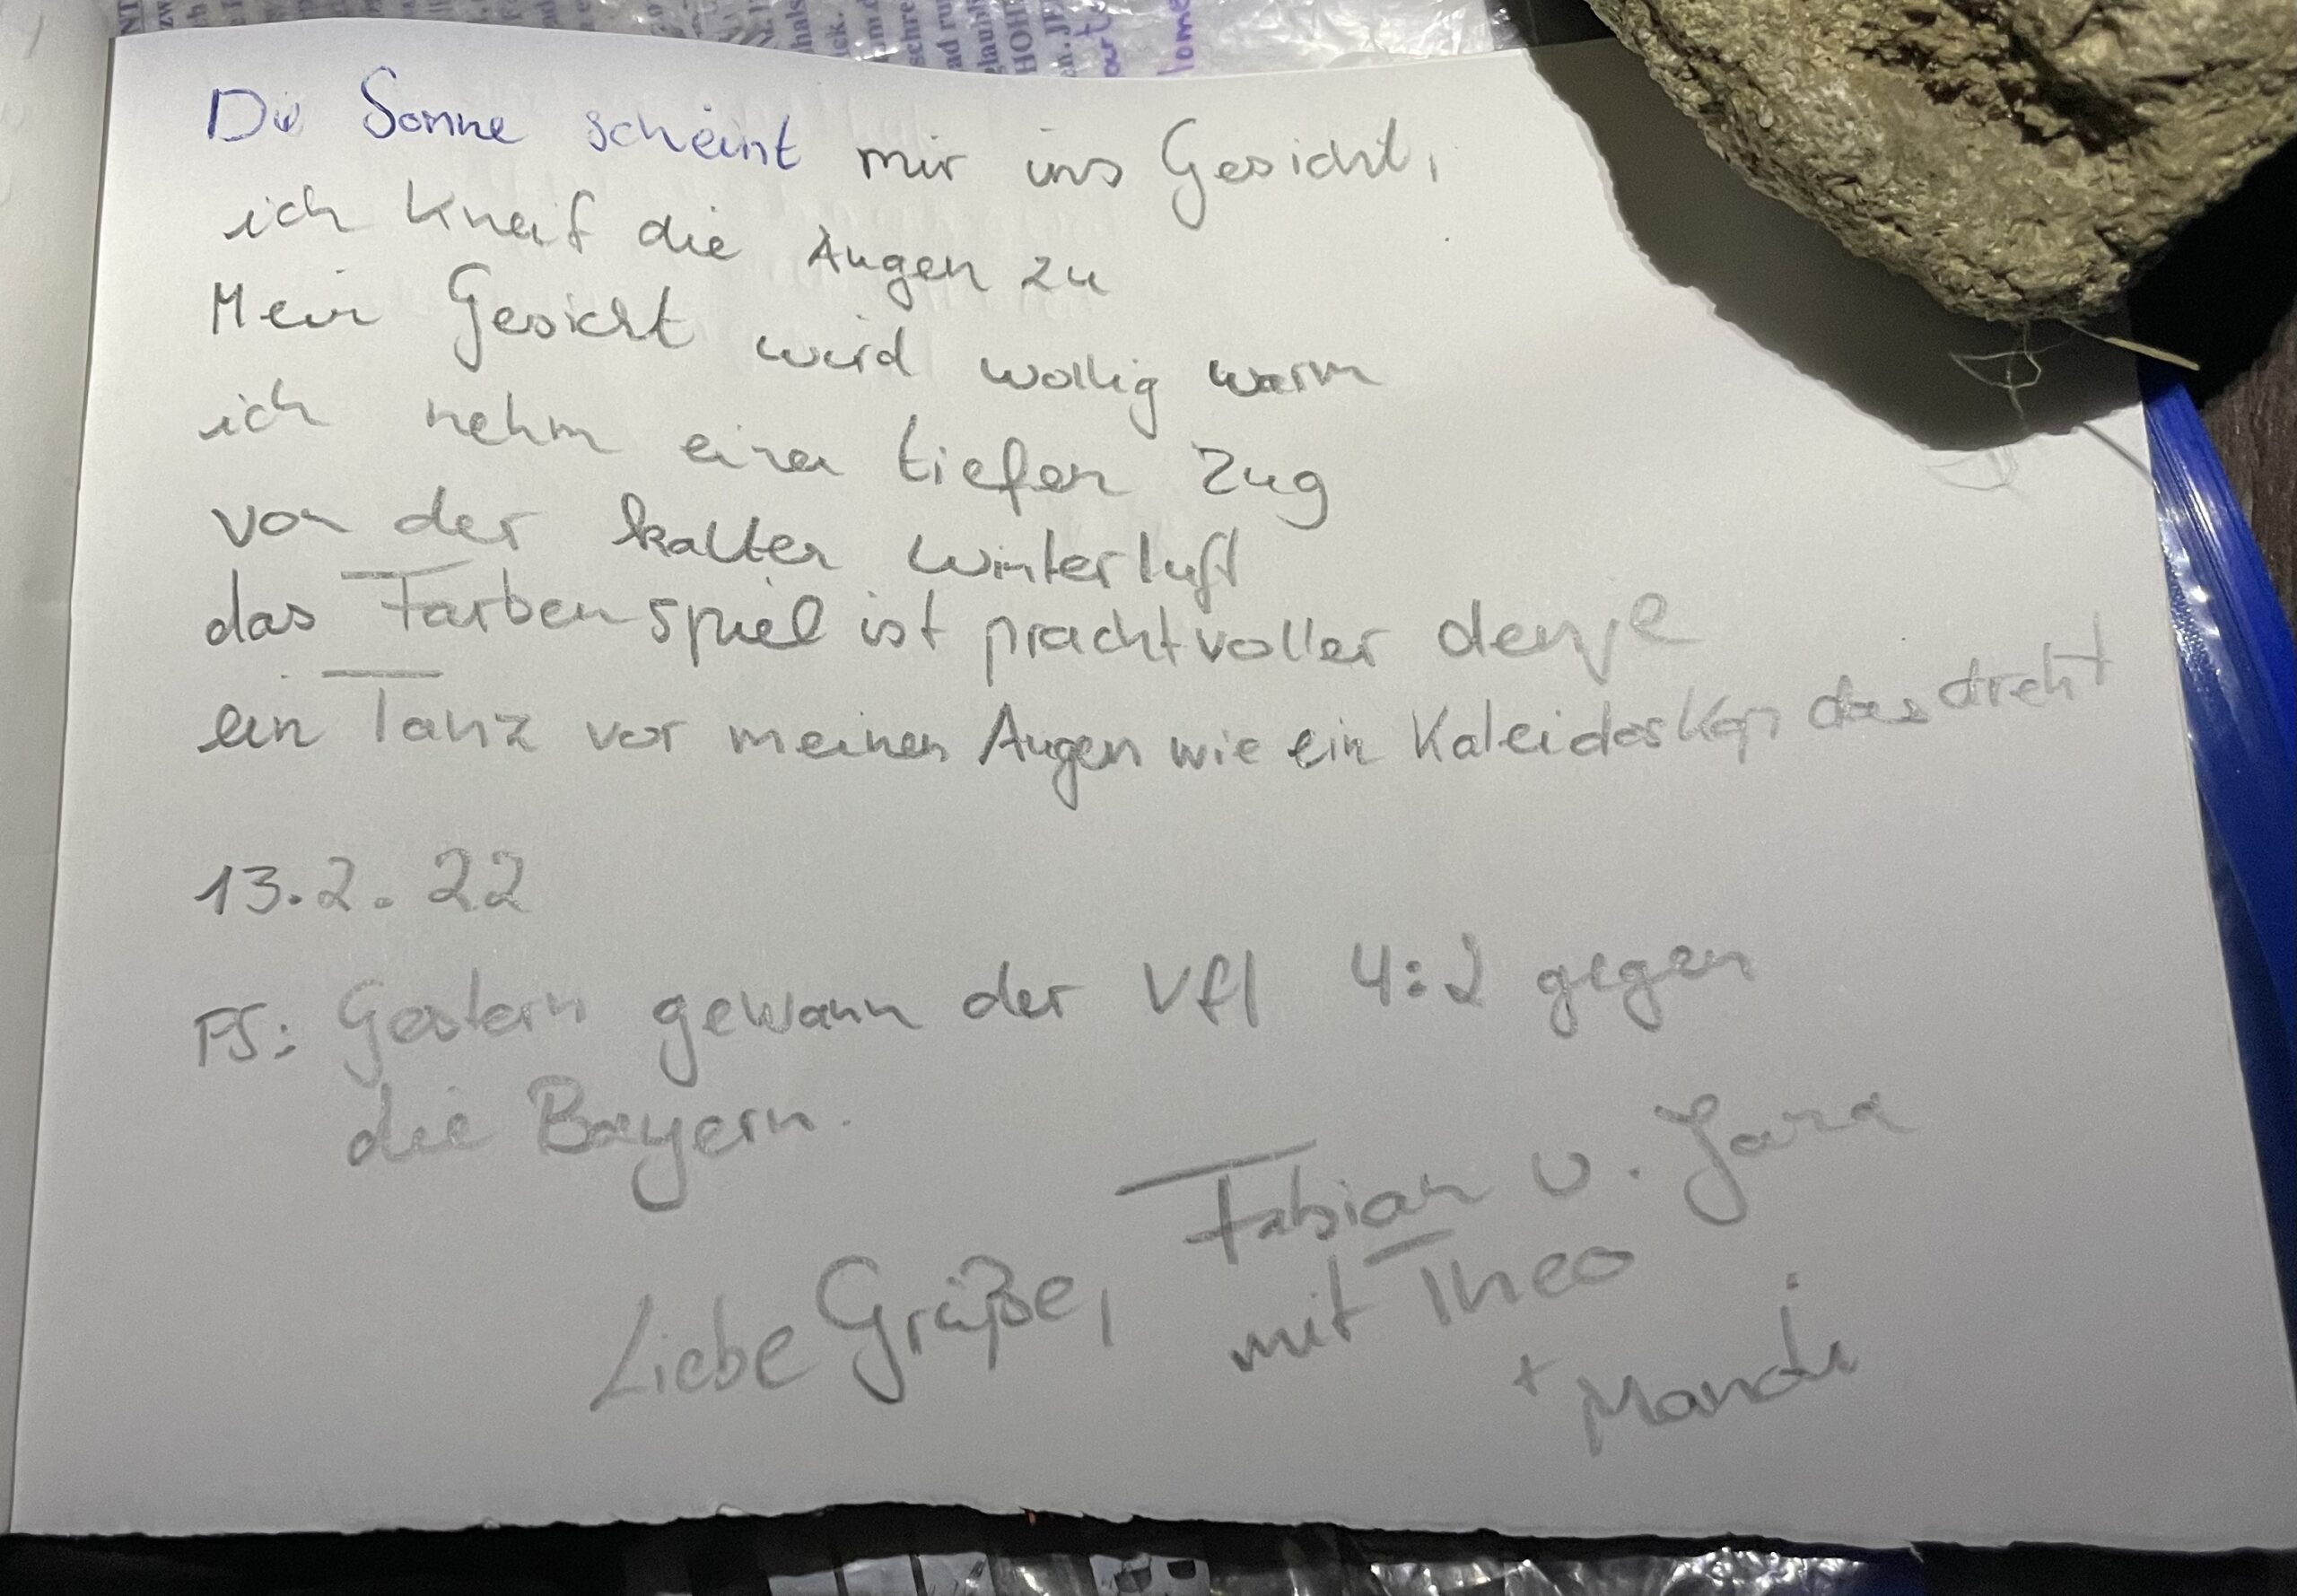 Die Sonne scheint mir ins Gesicht,
ich kneif die Augen zu
Mein Gesicht wird wollig warm
ich nehm einen tiefen Zug
von der kalten Winterluft
das Farbenspiel ist prachtvoller denje
ein Tanz vor meinen Augen wie ein Kaleidoskop das dreht
13.2.22
PS: Gestern gewann der Vfl 4:2 gegen
die Bayern.
Liebe Grüße, Fabian u. Jana
mit Theo
+ Mandi